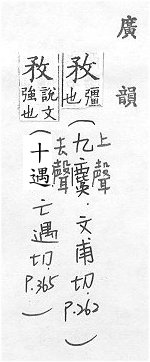 廣韻
敄 彊也(上聲 九麌.文甫切.P.262)
敄 說文強也(去聲 十遇 亡遇切.P.365)